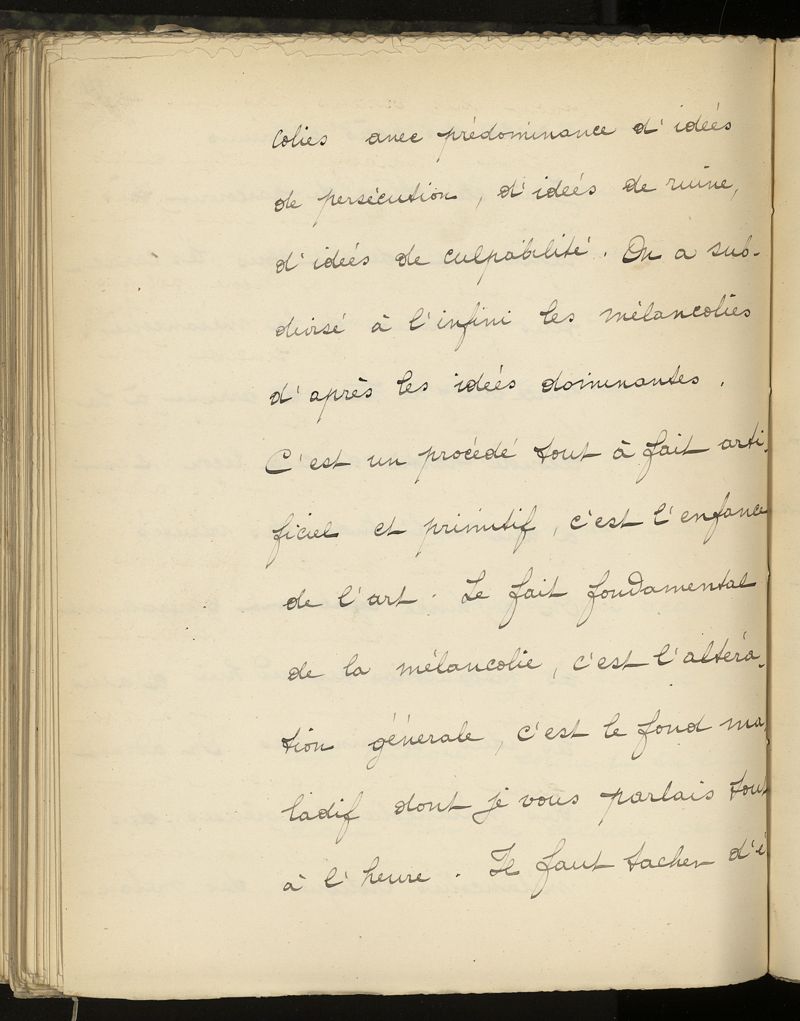 colies avec prédominance d'idées
de persécution, d'idées de ruine,
d'idées de culpabilité. On a sub-
divisé à l'infini les mélancolies
d'après les idées dominantes.
C'est un procédé tout à fait arti-
ficiel et primitif, c'est l'enfance
de l'art. Le fait fondamental
de la mélancolie, c'est l'altéra-
tion générale, c'est le fond ma-
ladif dont je vous parlais tout
à l'heure. Il faut tacher d'é